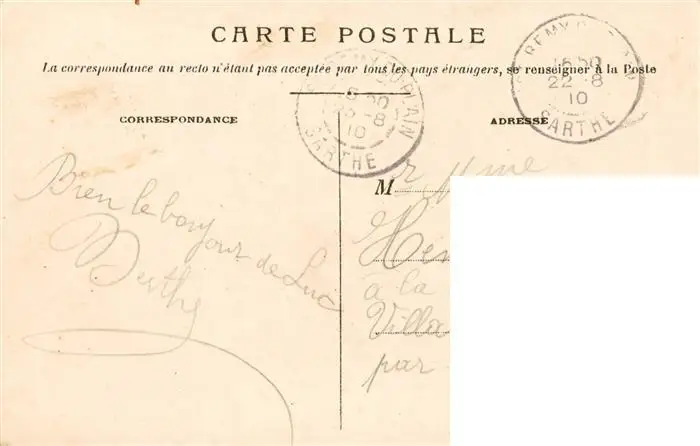 CARTE POSTALE
La correspondance au recto n'étant pas acceptée par tous les pays étrangers, se renseigner à la Poste
CORRESPONDANCE
ADRESSE
16 30
22 - 8
10
SARTHE
PLAIN
-8
10
SARTHE
Bien le bonjour de Luc
Berthe
M r Mme
à la
Villa
par